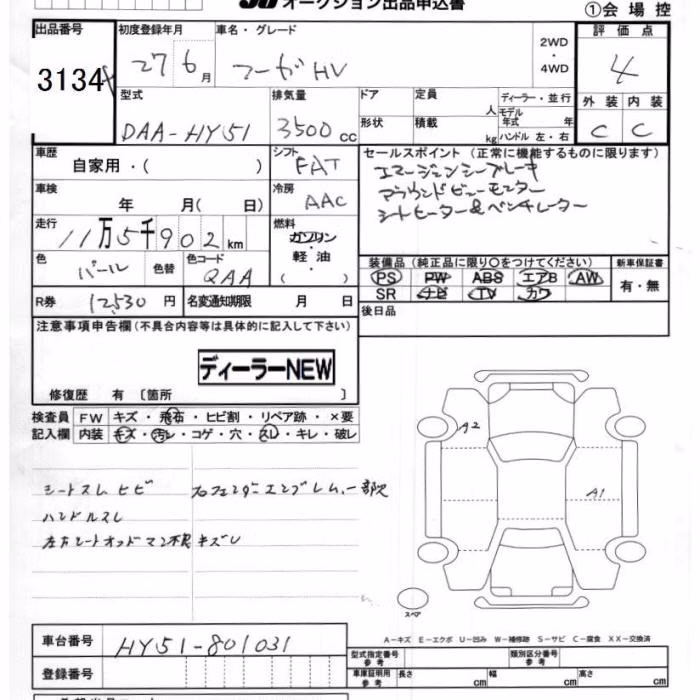 オークション出品申込書
①会場控
出品番号 初度登録年月 車名・グレード 2WD・4WD 評価点
3134 27 6月 フーガHV 4
型式 排気量 ドア 定員 人 ディーラー・並行 外装 内装
DAA-HY51 3500cc 形状 積載 kg モデル年式 年 ハンドル 左・右 C C
車歴 シフト セールスポイント (正常に機能するものに限ります)
自家用・( ) FAT エマージェンシーブレーキ
車検 冷房 アラウンドビューモニター
年 月( 日) AAC シートヒーター&ベンチレーター
走行 燃料
11万5千902km ガソリン・軽油・( )
色 パール 色替 色コード QAA
装備品 (純正品に限り○をつけてください) 新車保証書
PS PW ABS エアB AW 有・無
SR ナビ TV カワ
R券 12,530円 名変通知期限 月 日 後日品
注意事項申告欄(不具合内容等は具体的に記入して下さい)
ディーラーNEW
修復歴 有 〔箇所 〕
検査員 FW キズ・飛石・ヒビ割・リペア跡・×要
記入欄 内装 キズ・汚レ・コゲ・穴・スレ・キレ・破レ
シートスレヒビ
ハンドルスレ
キズレ
A2
A1
スペア
A-キズ E-エクボ U-凹み W-補修跡 S-サビ C-腐食 XX-交換済
車台番号 HY51-801031
型式指定番号 参考 類別区分番号 参考
登録番号 車庫証明用 参考 長さ cm 幅 cm 高さ cm